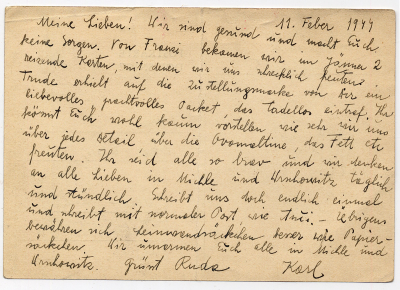 11. Feber 1944
Meine Lieben! Wir sind gesund und macht Euch
keine Sorgen. Von Franzi bekamen wir im Jänner 2
reizende Karten, mit denen wir uns schrecklich freuten.
Trude erhielt auf die Zulassungsmarke von
liebevolles prachtvolles Packet das tadellos eintraf. Ihr
könnt Euch wohl kaum vorstellen wie sehr wir uns
über jedes Detail, über die Ovomaltine, das Fett etc
freuten. Ihr seid alle so brav und wir denken
an alle Lieben in Michle und Wrschowitz täglich
und stündlich. Schreibt uns doch endlich einmal
und schreibt mit normaler Post, wie Anči. - Übrigens
bewähren sich Leinwandsäckchen besser wie Papier-
säckchen. Wir umarmen Euch alle in Michle und
Wrschowitz. Grüsst Ruda Karl